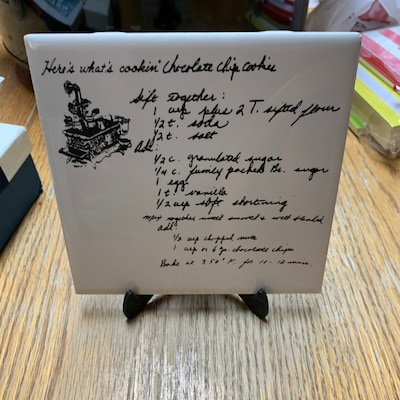 Here's what's cookin' Chocolate Chip Cookies
Sift together:
1 cup plus 2 T. sifted flour
1/2 t. soda
1/2 t. salt
Add:
1/2 c. granulated sugar
1/4 c. firmly packed Br. sugar
1 egg
1 t. vanilla
1/2 cup soft shortening
Mix together until smooth & well blended
Add:
1/2 cup chopped nuts
1 cup or 6 oz. chocolate chips
Bake at 350° F. for 10-12 mins.